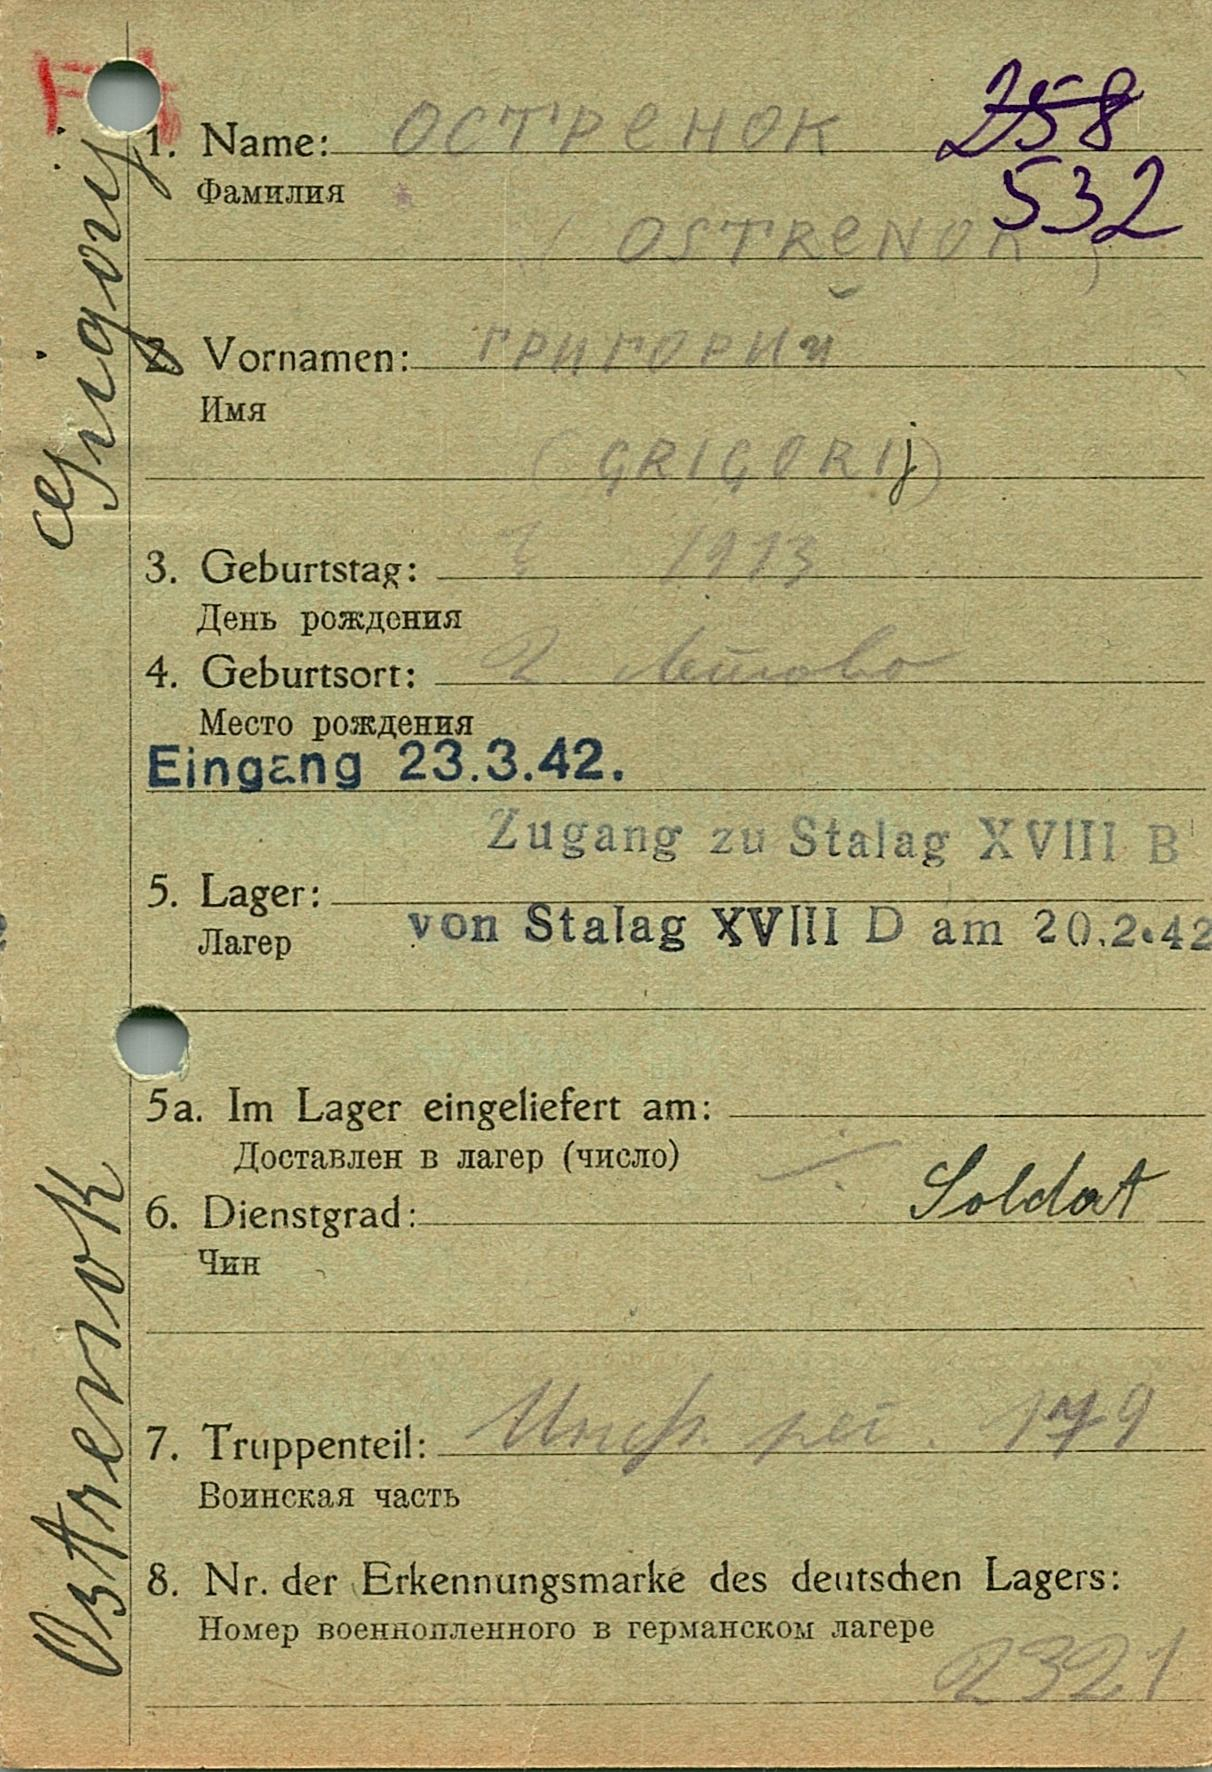 258
1. Name: ОСТРЕНОК
532
Фамилия
( OSTRENOK )
2. Vornamen: ГРИГОРИЙ
Имя
(GRIGORIj)
3. Geburtstag: 1913
День рождения
4. Geburtsort:
Место рождения
Eingang 23.3.42.
Zugang zu Stalag XVIII B
5. Lager:
von Stalag XVIII D am 20.2.42
Лагер
5a. Im Lager eingeliefert am:
Доставлен в лагер (число)
6. Dienstgrad: Soldat
Чин
7. Truppenteil: 179
Воинская часть
8. Nr. der Erkennungsmarke des deutschen Lagers:
Номер военнопленного в германском лагере
2321
Ostrenok Grigorij